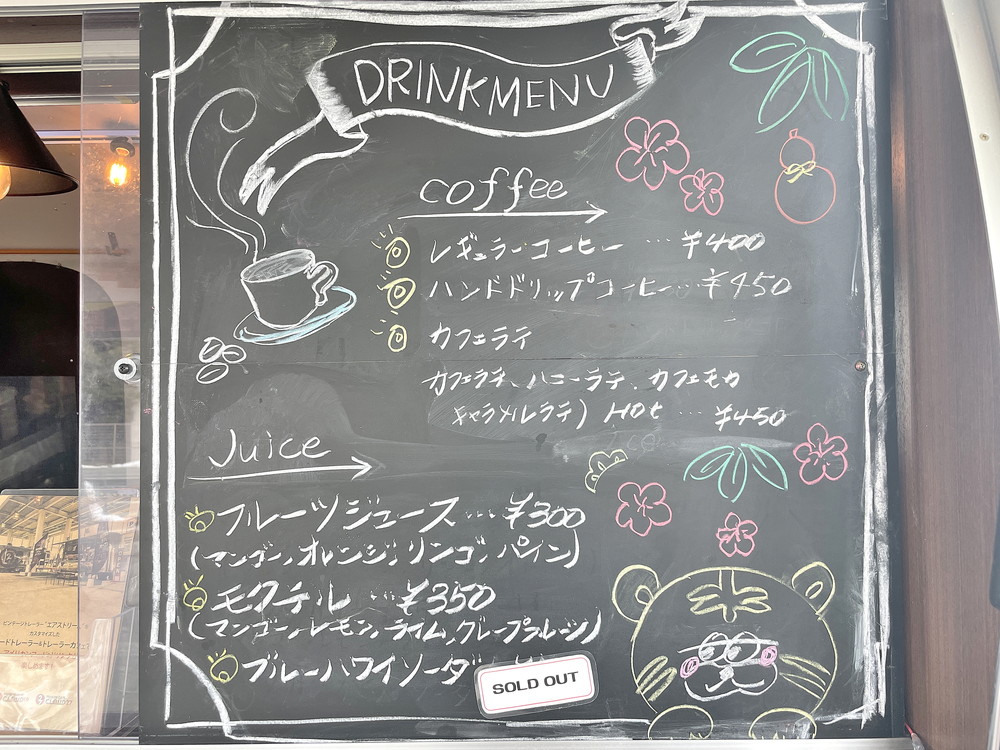 DRINKMENU
coffee
レギュラーコーヒー … ¥400
ハンドドリップコーヒー… ¥450
カフェラテ
カフェラテ、ハニーラテ、カフェモカ
キャラメルラテ) Hot … ¥450
Juice
フルーツジュース … ¥300
(マンゴー, オレンジ, リンゴ, パイン)
モクテル … ¥350
(マンゴー, レモン, ライム, グレープフルーツ)
ブルーハワイソーダ
SOLD OUT
カスタマイズした